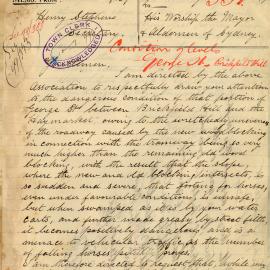 Henry Stephens
Secretary
His Worship the Mayor
& Aldermen of Sydney.
TOWN CLERK
ACKNOWLEDGED
Condition of levels
George St Brickfield Hill
Gentlemen,
I am directed by the above
Association to respectfully draw your attention
to the dangerous condition of that portion of
George St between Brickfield Hill and the
Haymarket, owing to the wretched unevenness
of the roadway caused by the new wood blocking
in connection with the tramway being so very
much higher than the remaining old wood
blocking, with the result that the slope
where the new and old blocking intersects, is
so sudden and severe, that footing for horses
even under favourable conditions, is unsafe,
but when swamped as it is by your water
carts, and further made greasy by shoot filth
it becomes positively dangerous, and is a
menace to vehicular traffic as the number
of falling horses plainly proves.
I am therefore directed to request that while